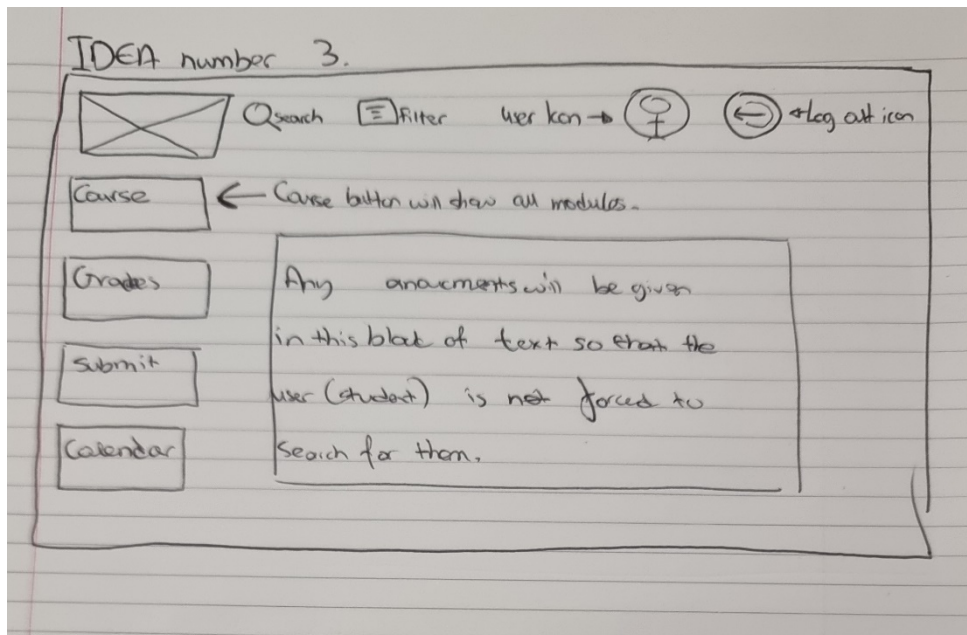 IDEA number 3.
search Filter user Icon → ← Log out icon
Course ← Course button will show all modules.
Grades
Submit
Calendar
Any anoucments will be given
in this block of text so that the
user (student) is not forced to
search for them.